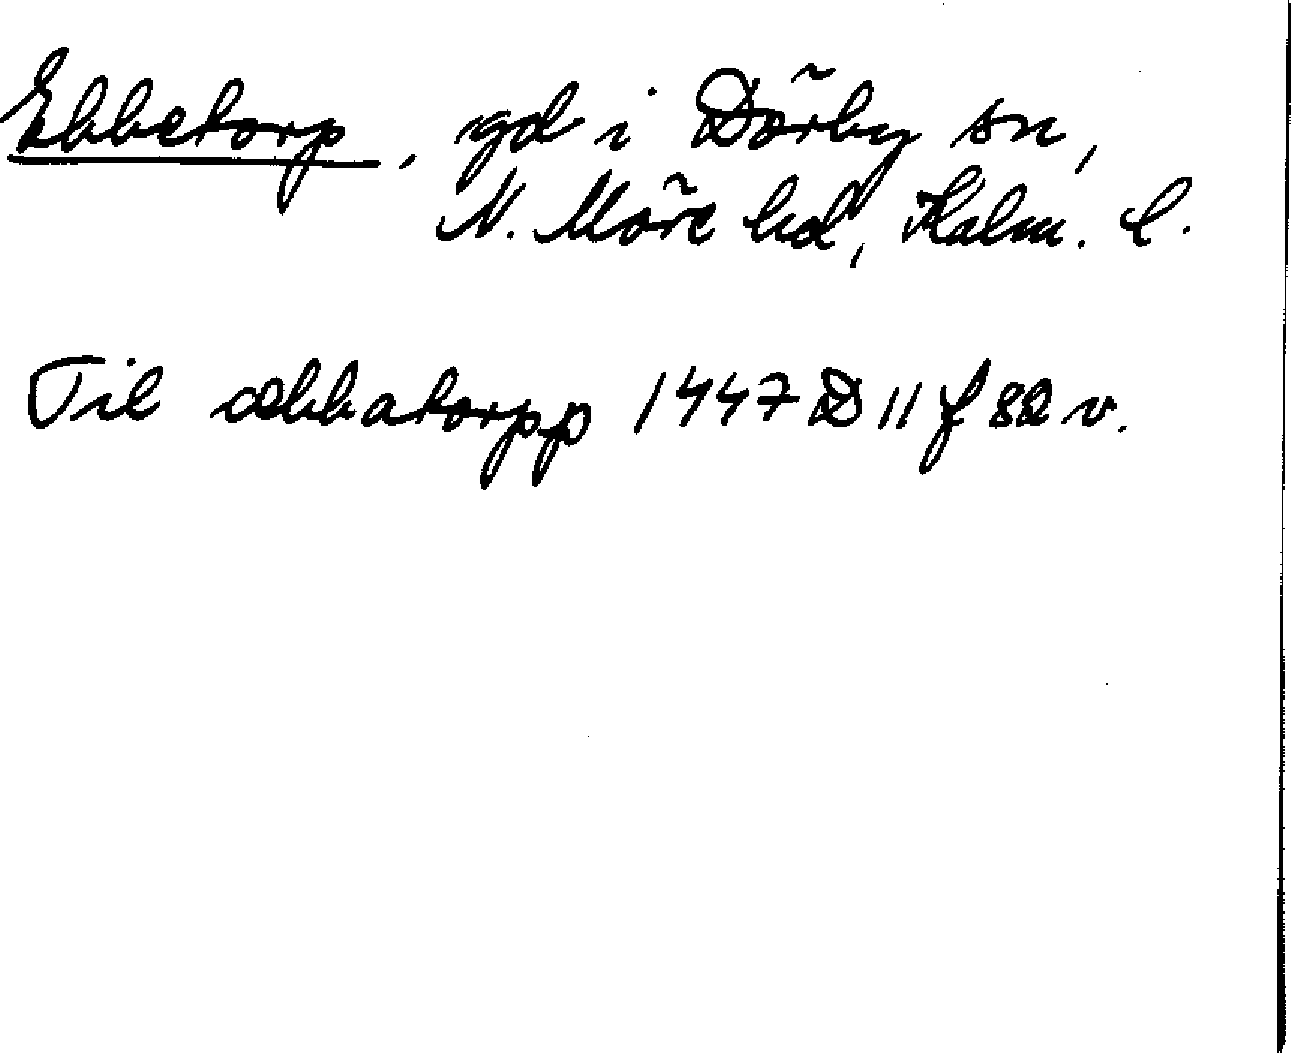 Ebbetorp, gd i Dörby sn,
N. Möre hd, Kalm. l.
Til æbbatorpp 1447 D 11 f 82 v.